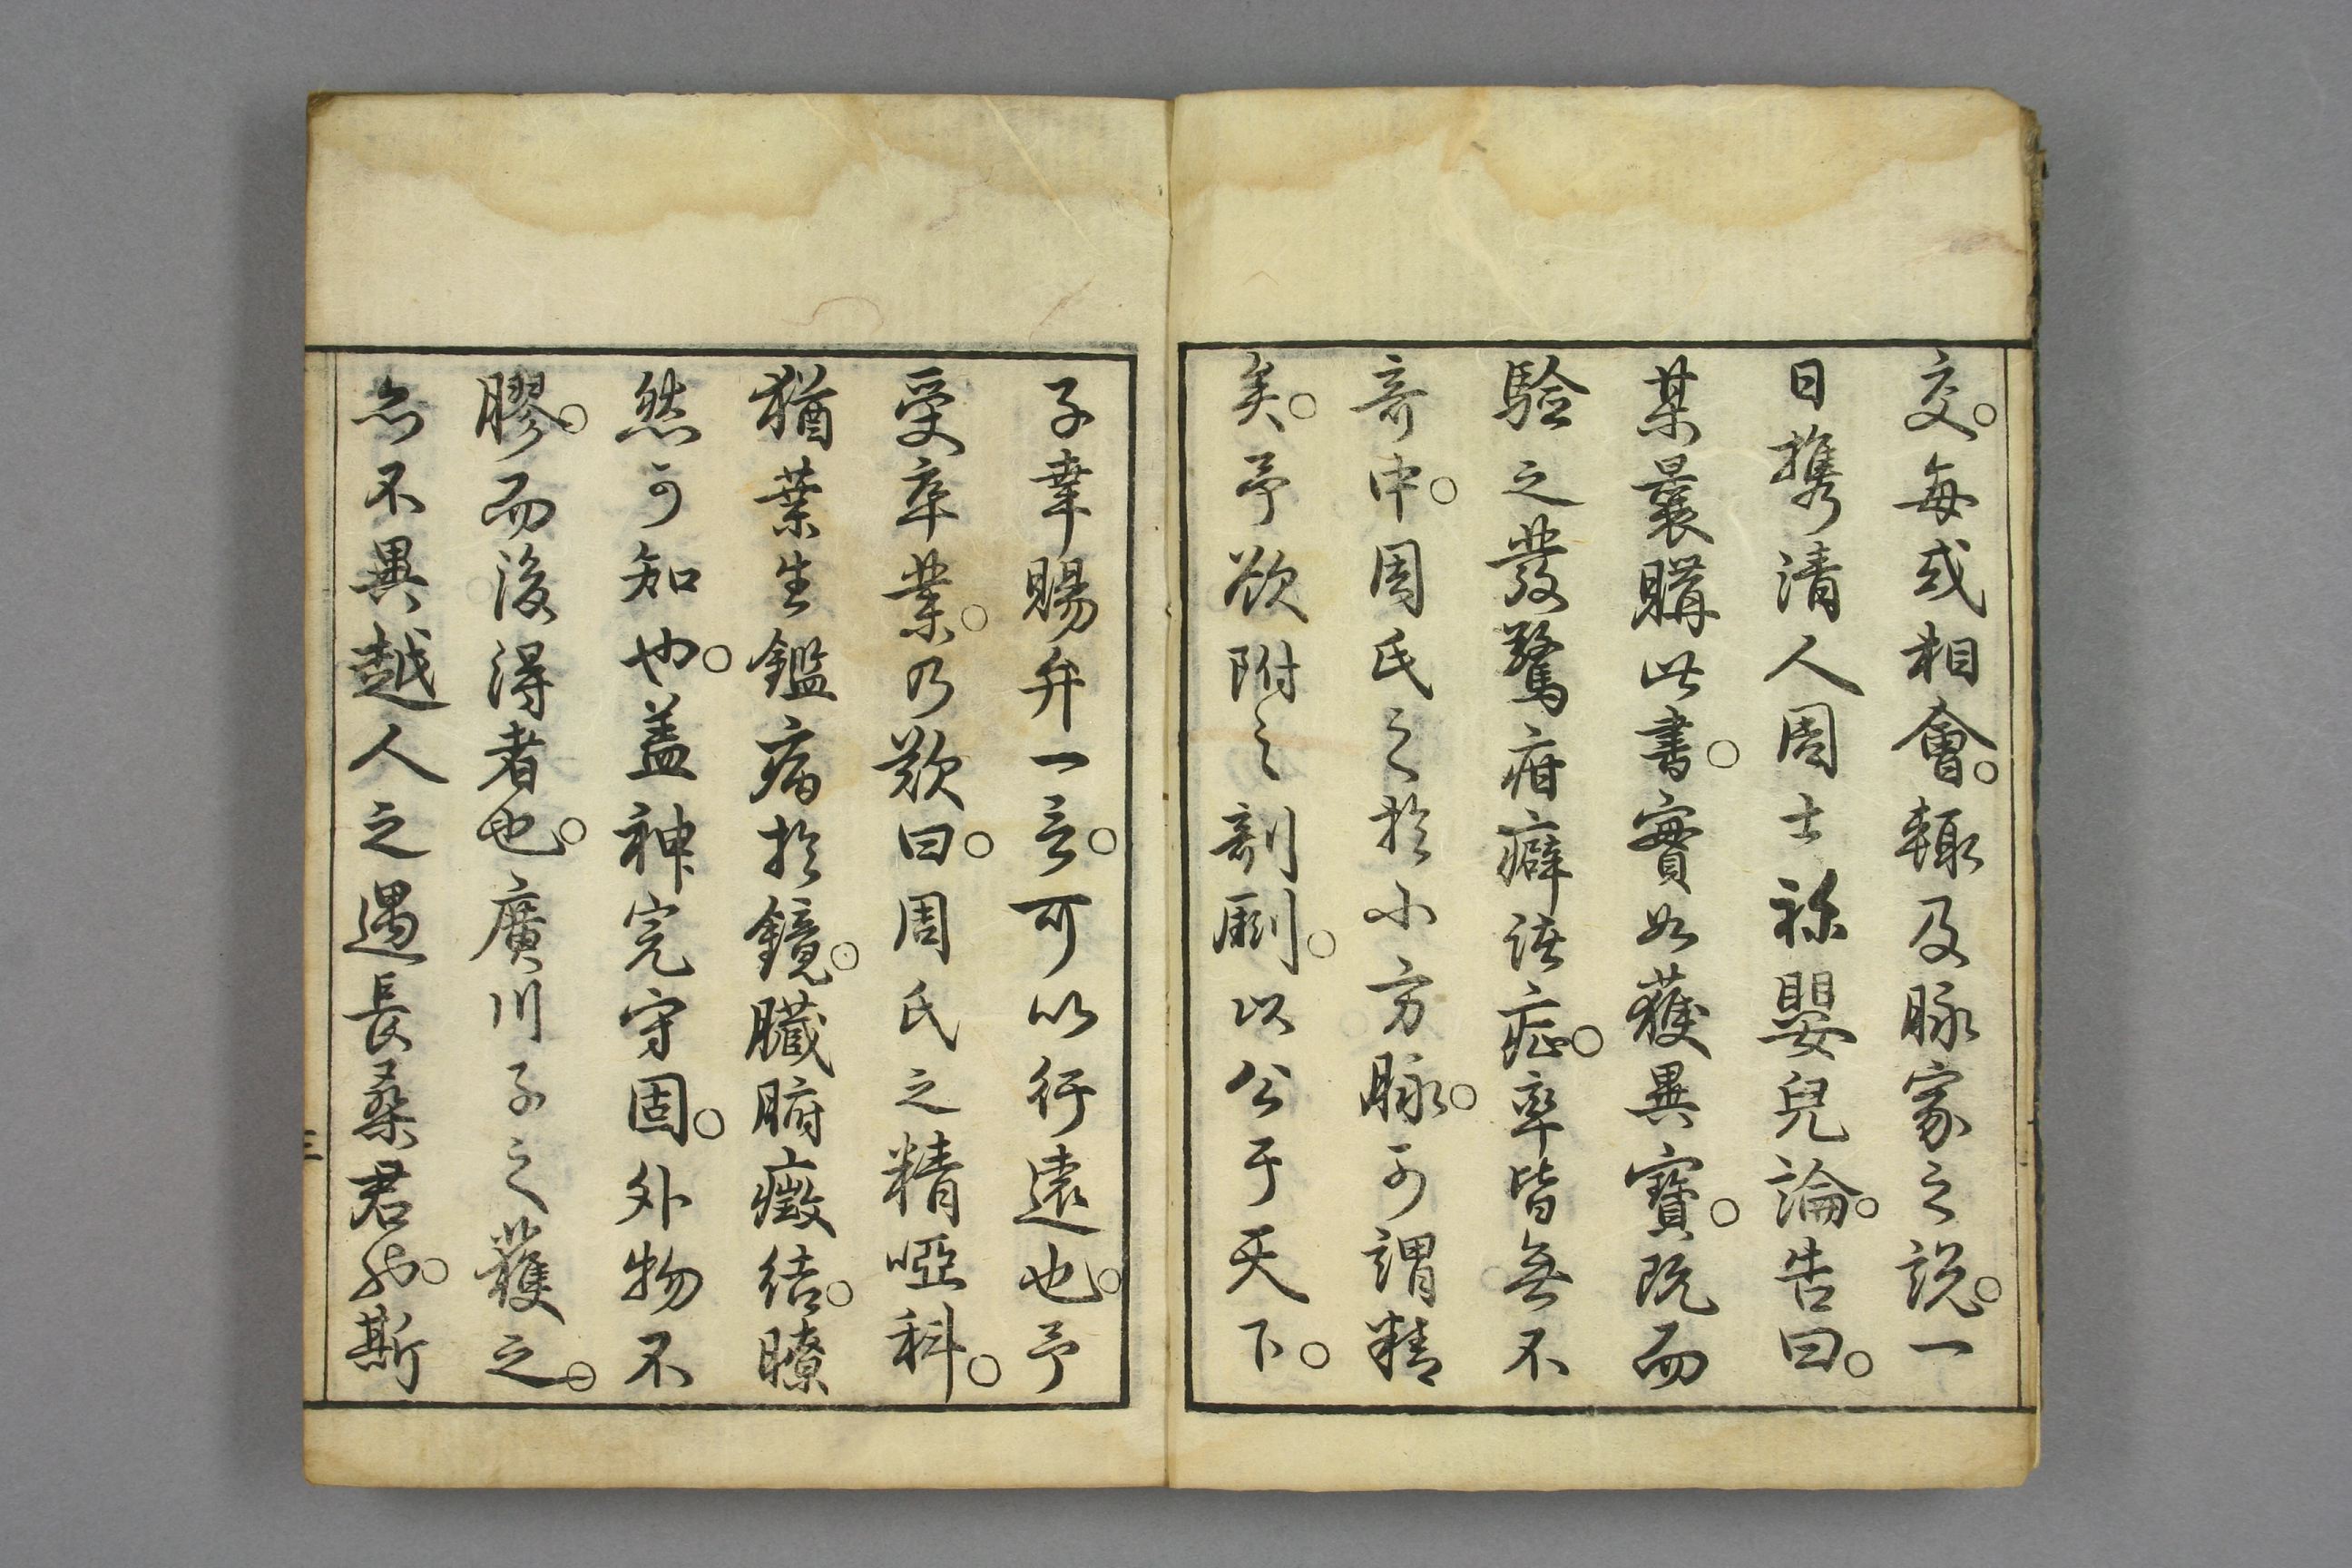 交。每或相會。輙及脉家之説。一
日携清人周士祢嬰兒論。告曰。
某曩購此書。實如獲異寶。既而
驗之發驚疳癖諸症。率皆無不
奇中。周氏之於小方脉。可謂精
矣。予欲附之剞劂。以公于天下。
子幸賜弁一言。可以行遠也。予
受卒業。乃歎曰。周氏之精啞科。
猶葉生鑑病於鏡。臟腑癥結。瞭
然可知也。盖神完守固。外物不
膠。而後得者也。廣川子之獲之。
亦不異越人之遇長桑君也。斯
三